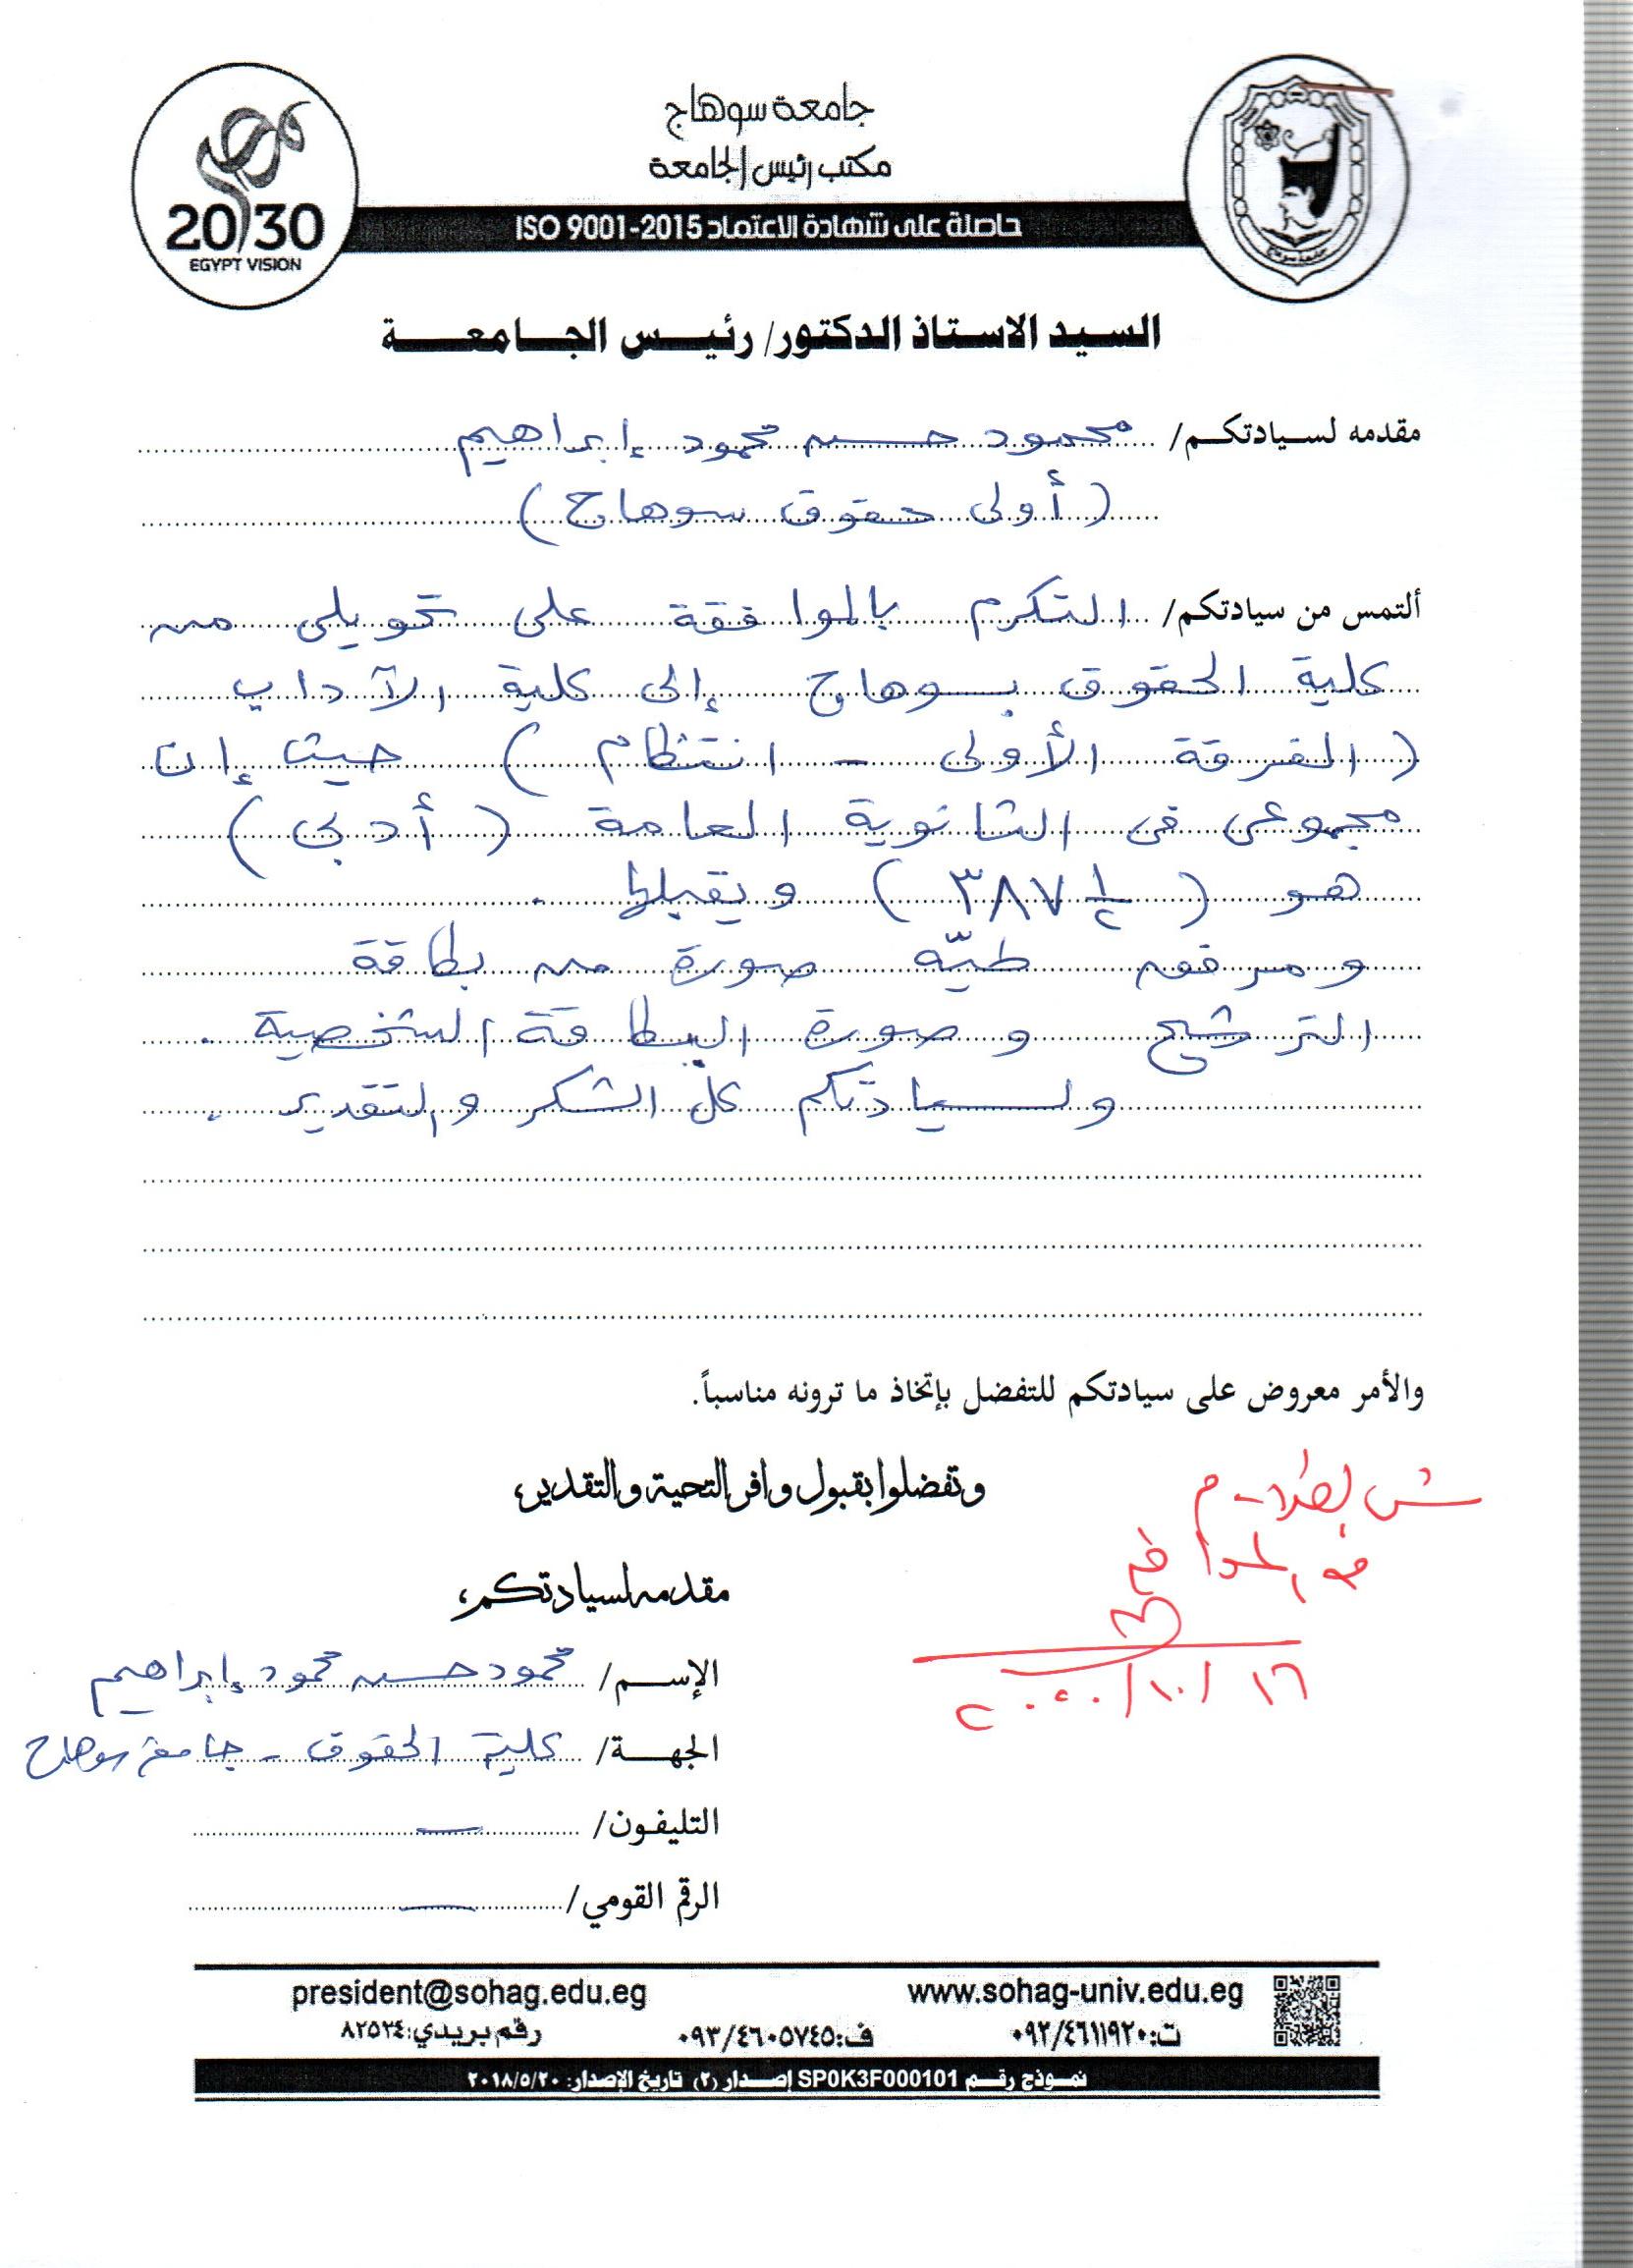 جامعة سوهاج
مكتب رئيس الجامعة
حاصلة على شهادة الاعتماد ISO 9001-2015
مصر
2030
EGYPT VISION
جامعة سوهاج
السيد الاستاذ الدكتور/ رئيس الجامعة
مقدمه لسيادتكم/ محمود حسن محمود إبراهيم
(أولى حقوق سوهاج)
ألتمس من سيادتكم/ التكرم بالموافقة على تحويلى من
كلية الحقوق بسوهاج إلى كلية الآداب
(الفرقة الأولى - انتظام) حيث إن
مجموعى فى الثانوية العامة (أدبى)
هو (٣٨٧ ١/٢) ويقبلها .
ومرفق طيّه صورة من بطاقة
الترشيح وصورة البطاقة الشخصية .
ولسيادتكم كل الشكر والتقدير .
والأمر معروض على سيادتكم للتفضل بإتخاذ ما ترونه مناسباً.
وتفضلوا بقبول وافر التحية والتقدير،
مقدمه لسيادتكم،
الإسم/ محمود حسن محمود إبراهيم
الجهة/ كلية الحقوق - جامعة سوهاج
التليفون/ —
الرقم القومي/ —
١٦/١٠/٢٠٢٠
www.sohag-univ.edu.eg president@sohag.edu.eg
ت:٠٩٣/٤٦١١٩٢٠ ف:٠٩٣/٤٦٠٥٧٤٥ رقم بريدي:٨٢٥٢٤
نموذج رقم SP0K3F000101 إصدار (٢) تاريخ الإصدار: ٢٠١٨/٥/٢٠